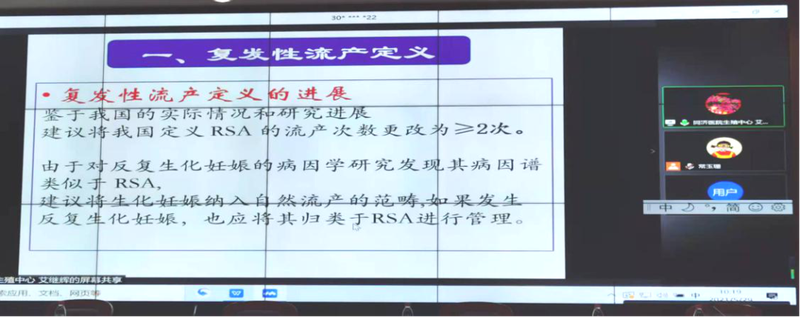 30* *** *22
一、复发性流产定义
• 复发性流产定义的进展
鉴于我国的实际情况和研究进展
建议将我国定义 RSA 的流产次数更改为≥2次。
由于对反复生化妊娠的病因学研究发现其病因谱
类似于 RSA,
建议将生化妊娠纳入自然流产的范畴,如果发生
反复生化妊娠，也应将其归类于RSA进行管理。
同济医院生殖中心 艾...
用户
中 简
生殖中心 艾继辉的屏幕共享
索应用、文档、网页等
中